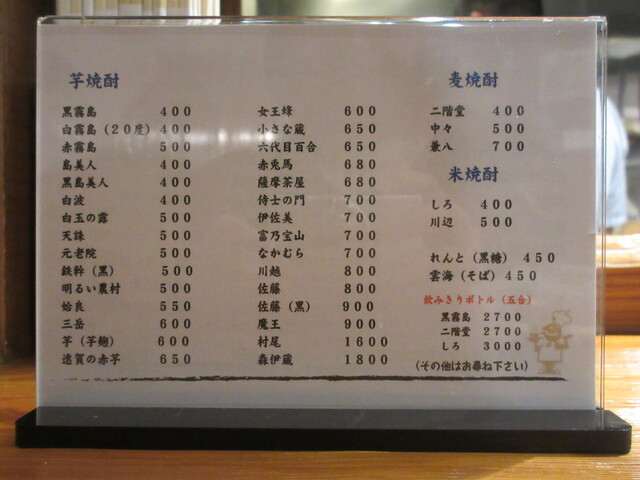 芋焼酎
黒霧島 400
白霧島（20度） 400
赤霧島 500
島美人 400
黒島美人 400
白波 400
白玉の露 500
天誅 500
元老院 500
鉄幹（黒） 500
明るい農村 500
姶良 550
三岳 600
芋（芋麹） 600
遠賀の赤芋 650
女王蜂 600
小さな蔵 650
六代目百合 650
赤兎馬 680
薩摩茶屋 680
侍士の門 700
伊佐美 700
富乃宝山 700
なかむら 700
川越 800
佐藤 800
佐藤（黒） 900
魔王 900
村尾 1600
森伊蔵 1800
麦焼酎
二階堂 400
中々 500
兼八 700
米焼酎
しろ 400
川辺 500
れんと（黒糖） 450
雲海（そば） 450
飲みきりボトル（五合）
黒霧島 2700
二階堂 2700
しろ 3000
（その他はお尋ね下さい）